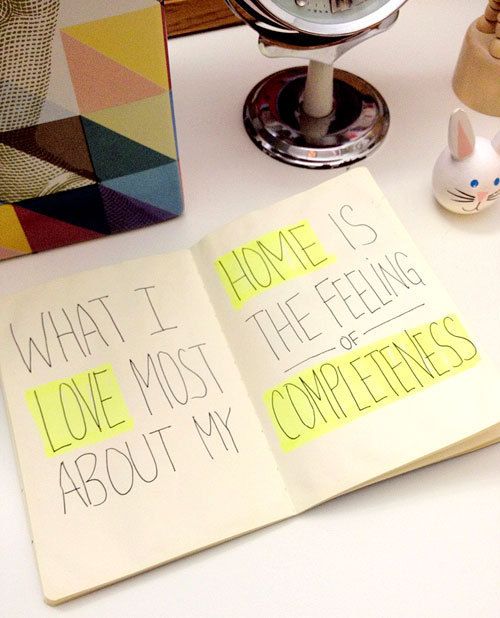 WHAT I
LOVE MOST
ABOUT MY
HOME IS
THE FEELING
OF
COMPLETENESS